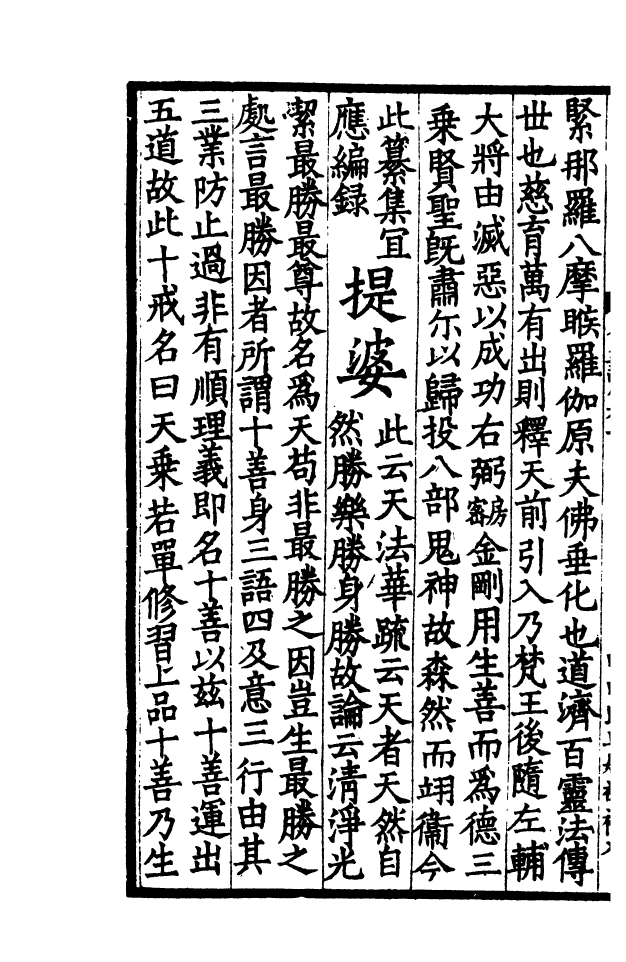 緊那羅八摩睺羅伽原夫佛垂化也道濟百靈法傳
世也慈育萬有出則釋天前引入乃梵王後隨左輔
大將由滅惡以成功右弼密房金剛用生善而為德三
乗賢聖旣肅尓以歸投八部鬼神故森然而翊衞今
此纂集冝
應編録
提婆
此云天法華疏云天者天然自
然勝樂勝身勝故論云清淨光
潔最勝最尊故名為天苟非最勝之因豈生最勝之
處言最勝因者所謂十善身三語四及意三行由其
三業防止過非有順理義即名十善以兹十善運出
五道故此十戒名曰天乗若單修習上品十善乃生